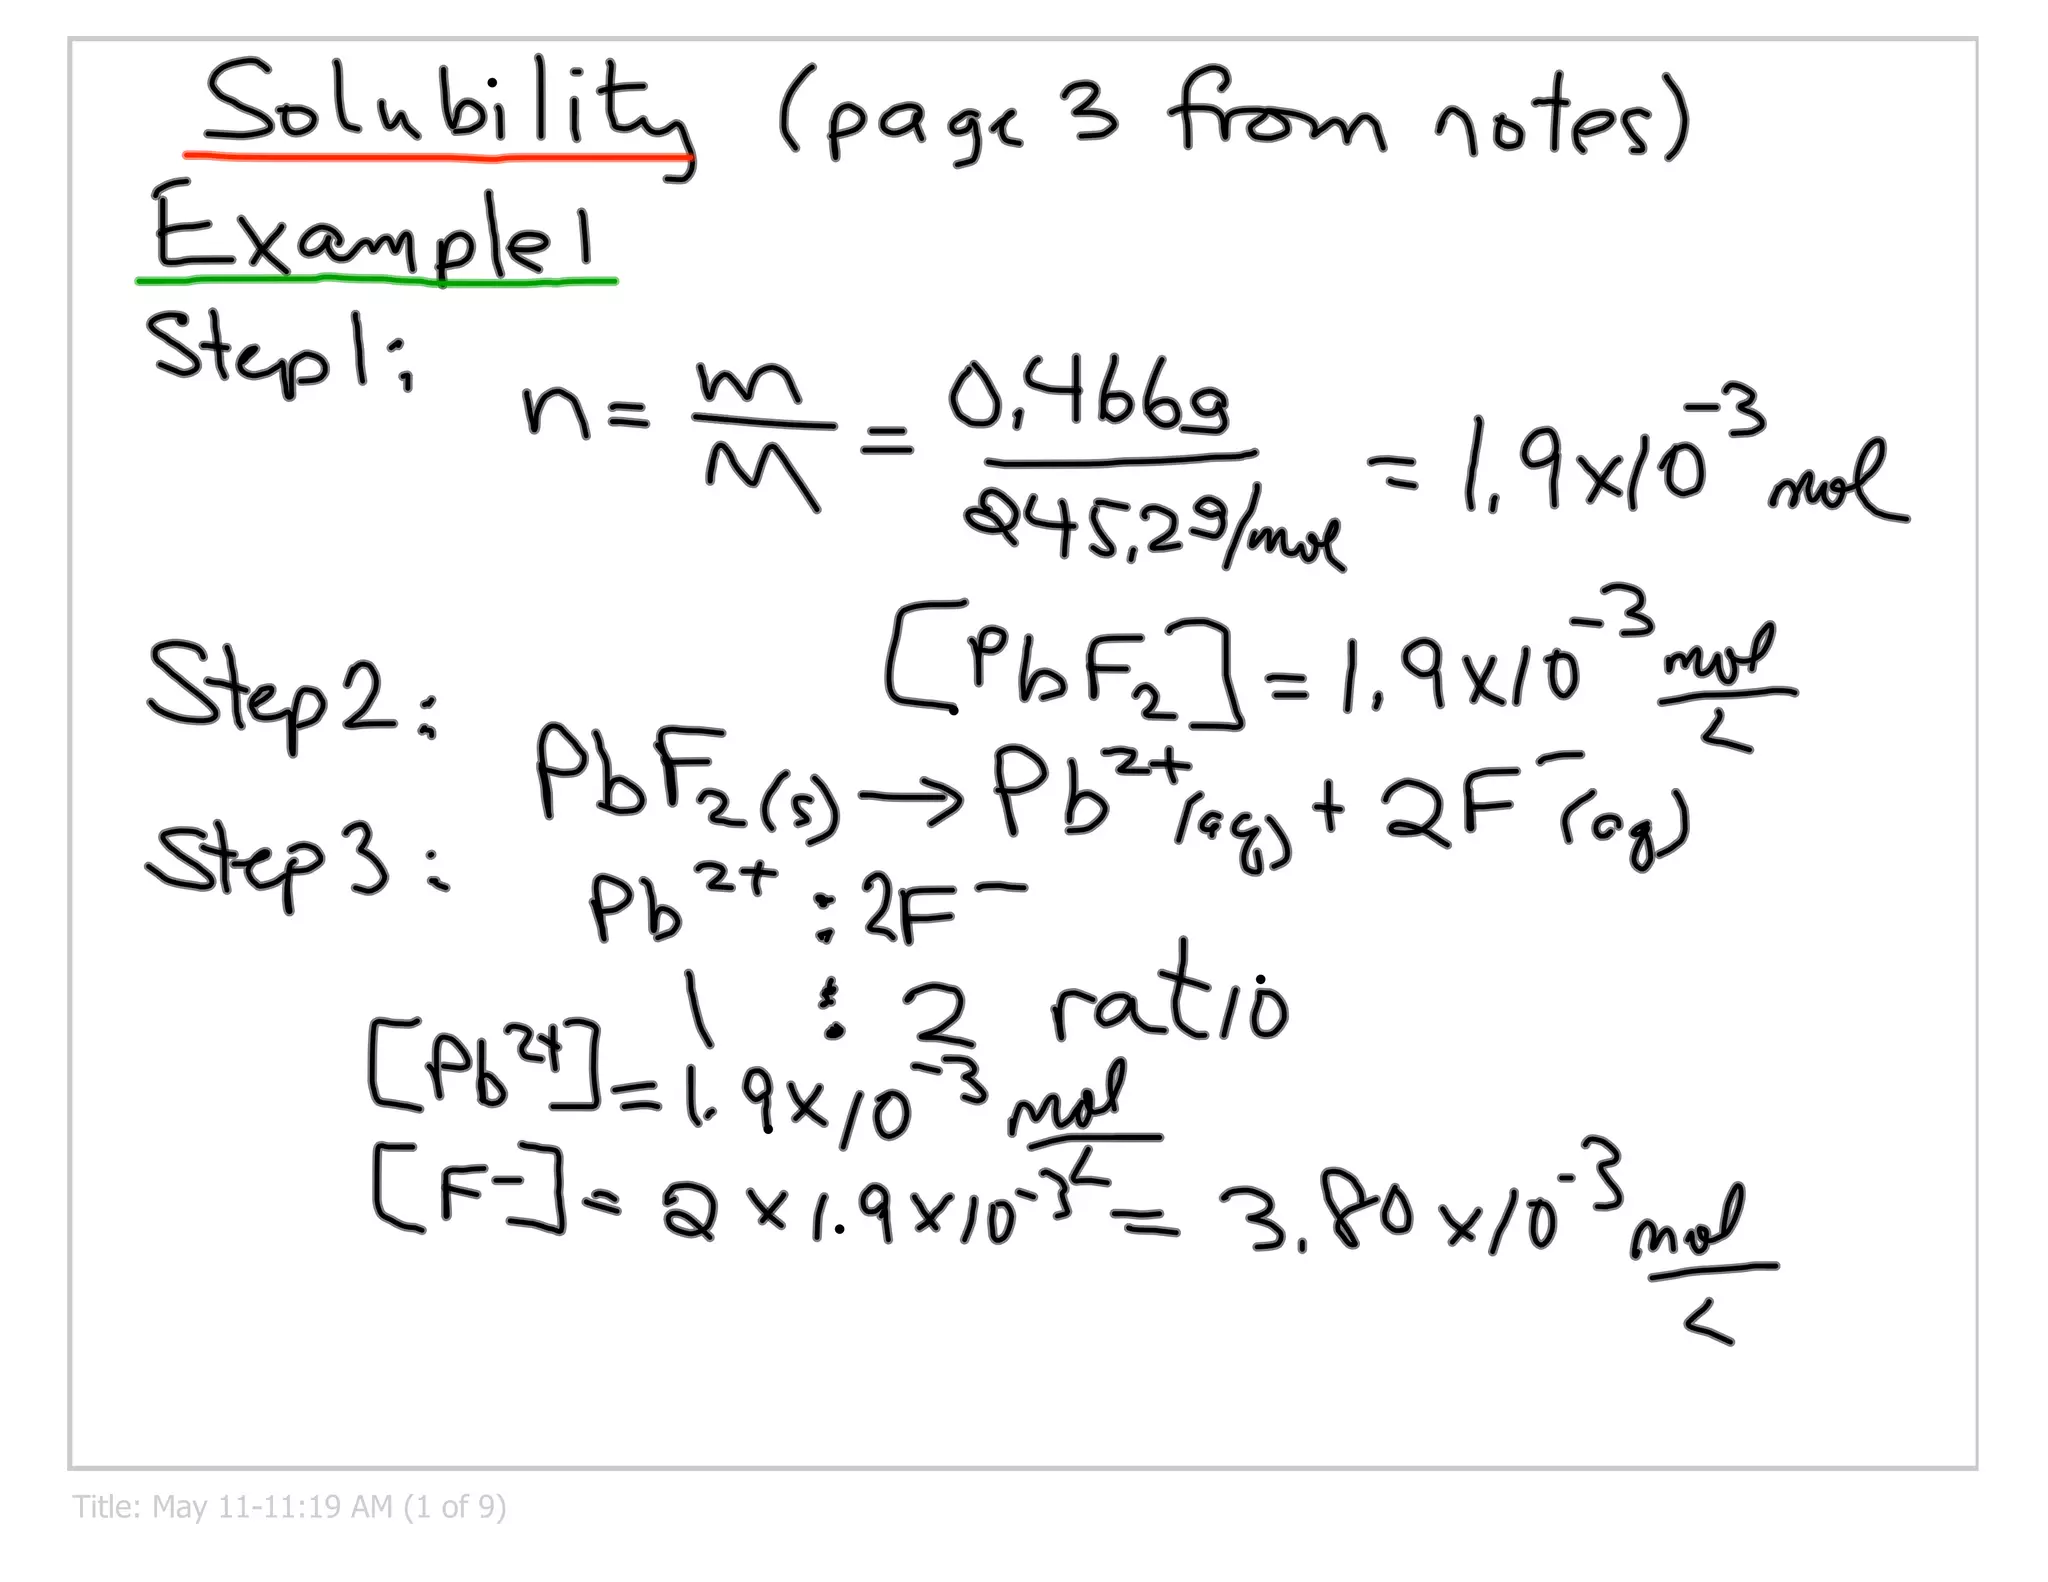 Solubility (page 3 from notes)
Example 1
Step 1: n = m/M = 0.466g / 245.2g/mol = 1.9 x 10⁻³ mol
[PbF₂] = 1.9 x 10⁻³ mol/L
Step 2: PbF₂(s) → Pb²⁺(aq) + 2F⁻(aq)
Step 3: Pb²⁺ : 2F⁻
1 : 2 ratio
[Pb²⁺] = 1.9 x 10⁻³ mol/L
[F⁻] = 2 x 1.9 x 10⁻³ = 3.80 x 10⁻³ mol/L
Title: May 11-11:19 AM (1 of 9)